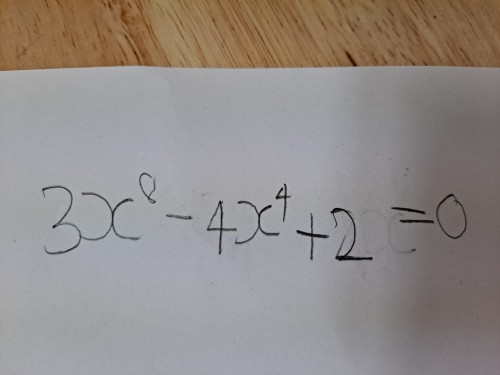 3x⁸ - 4x⁴ + 2 = 0